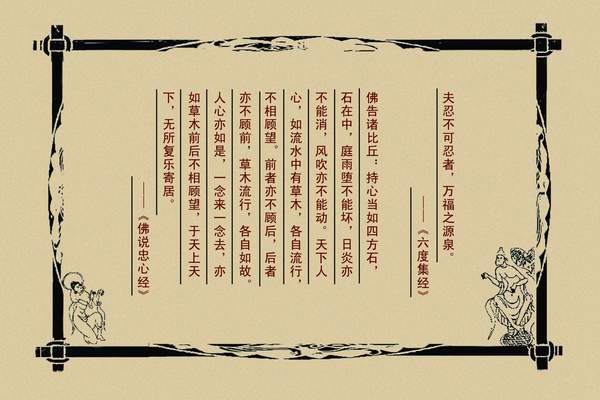 夫忍不可忍者，万福之源泉。
——《六度集经》
佛告诸比丘：持心当如四方石，
石在中，庭雨堕不能坏，日炎亦
不能消，风吹亦不能动。天下人
心，如流水中有草木，各自流行，
不相顾望。前者亦不顾后，后者
亦不顾前，草木流行，各自如故。
人心亦如是，一念来一念去，亦
如草木前后不相顾望，于天上天
下，无所复乐寄居。
——《佛说忠心经》